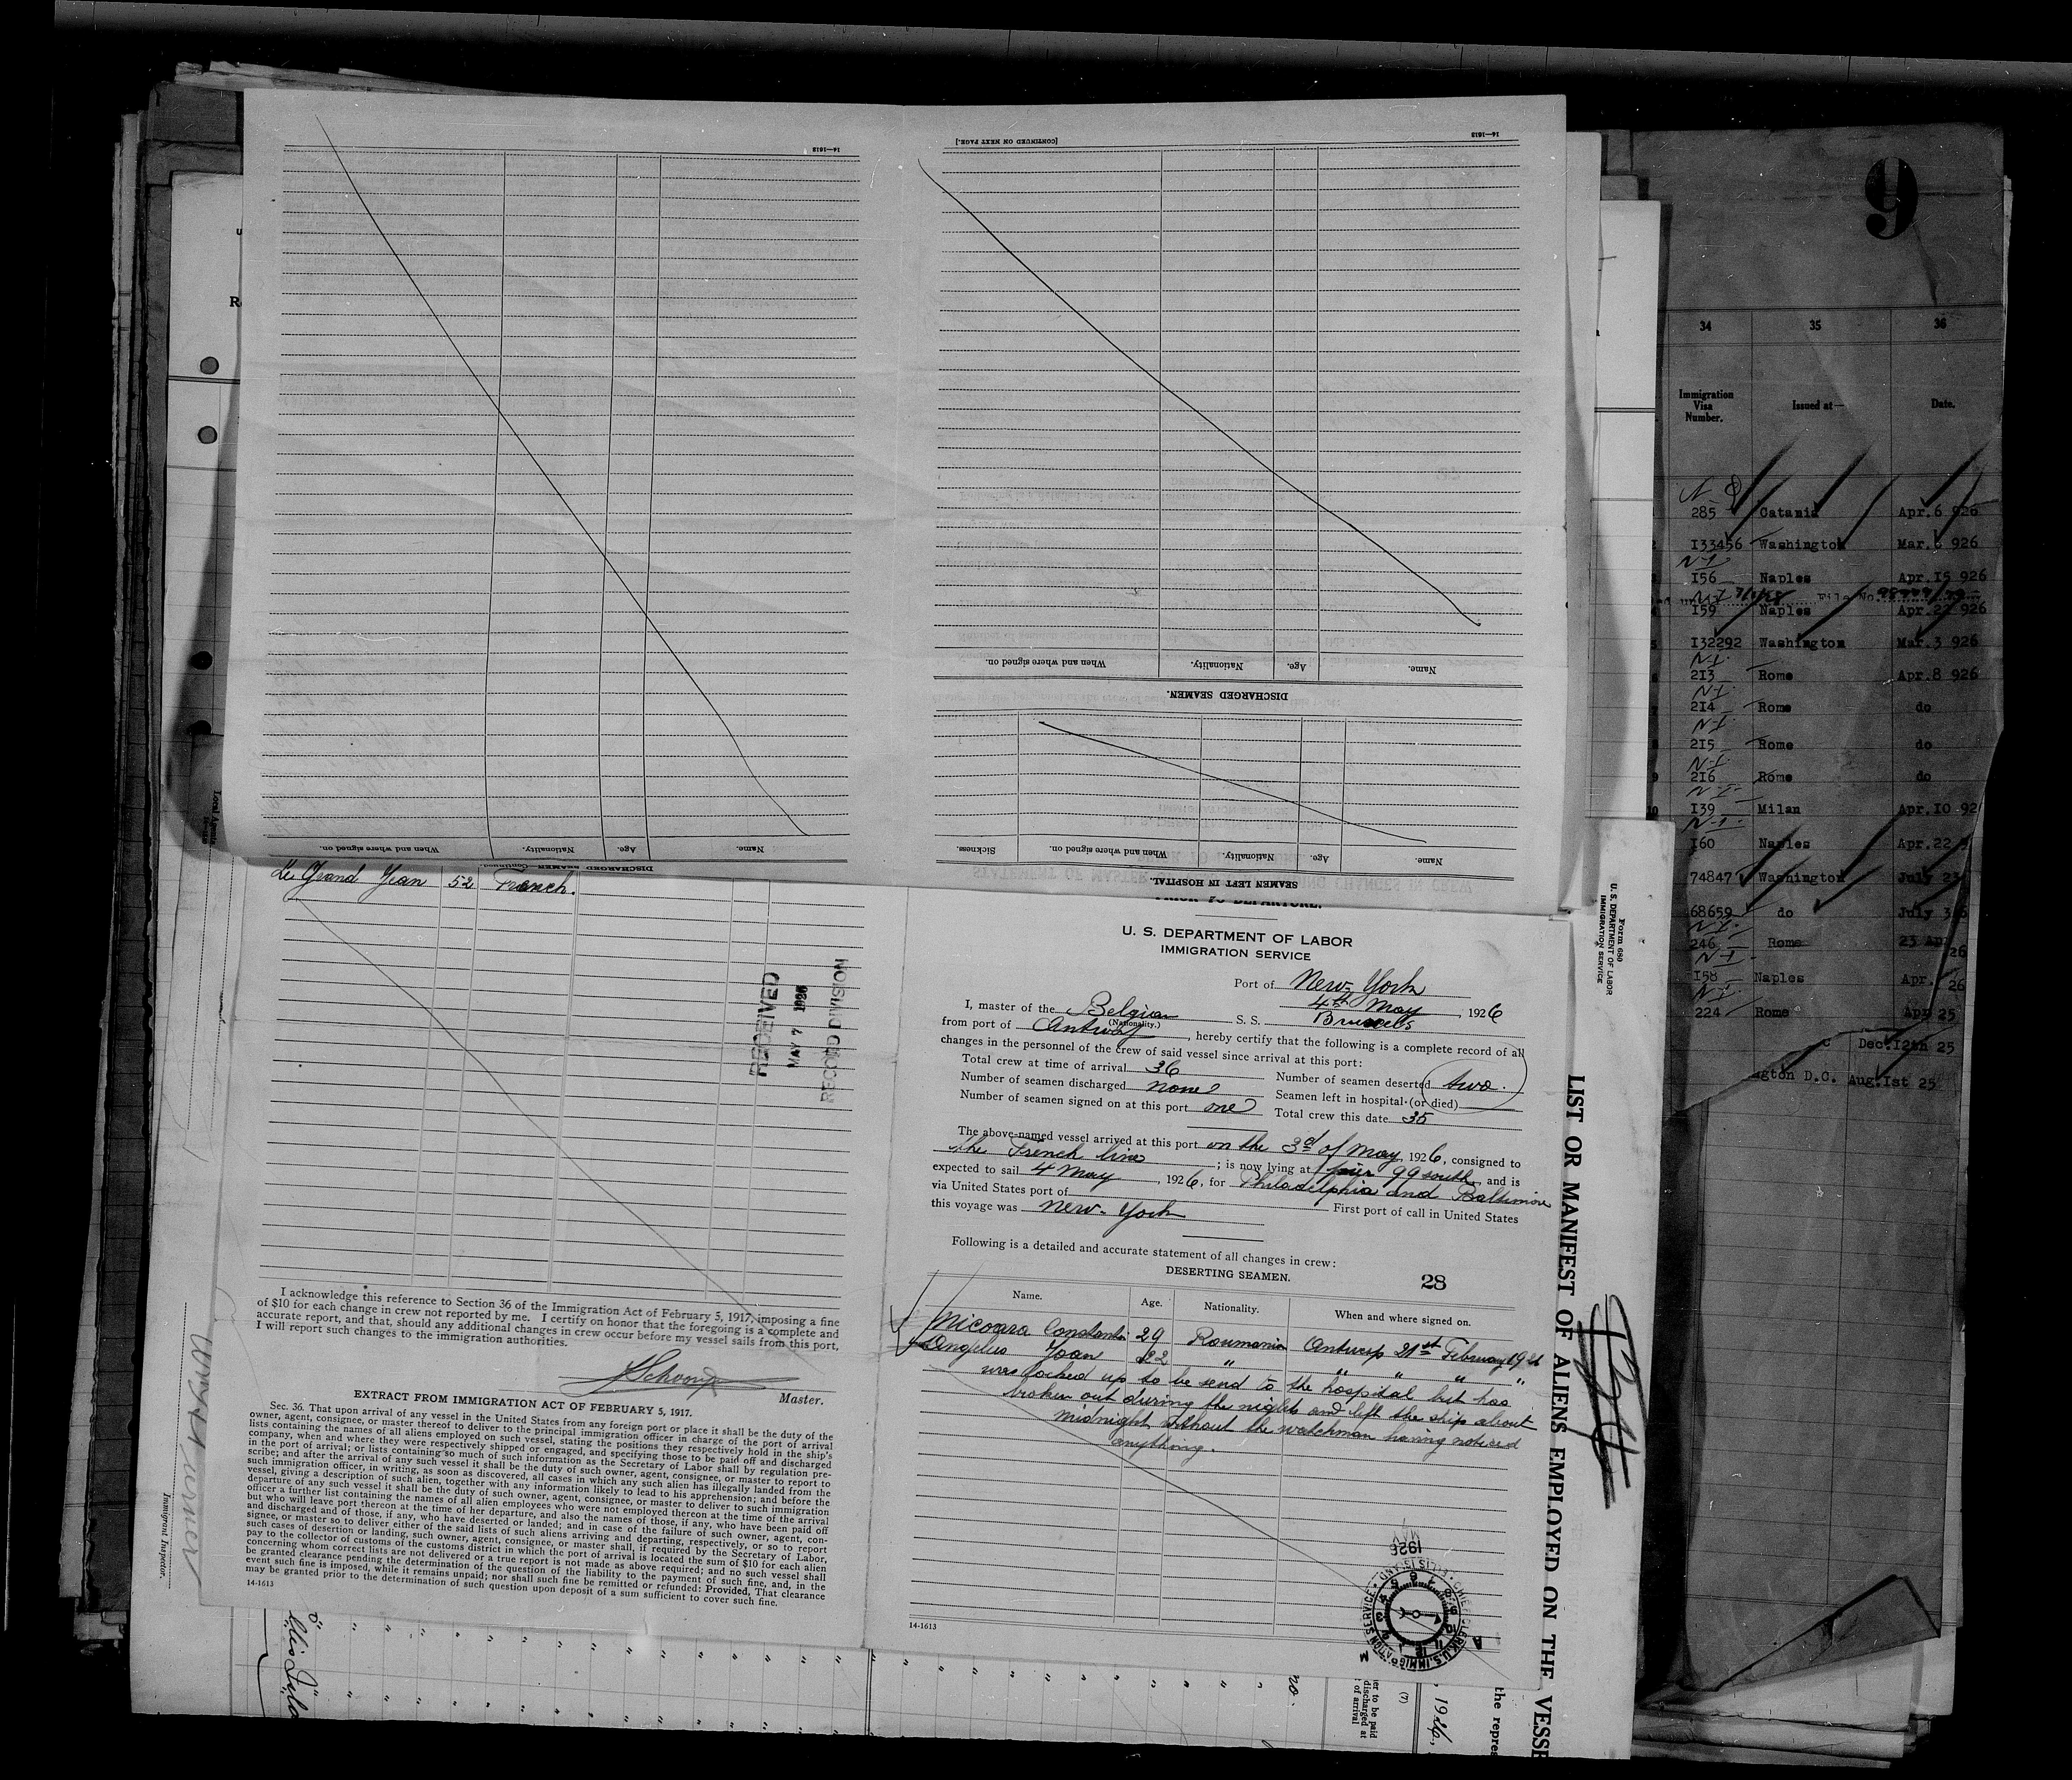 14—1613
[CONTINUED ON NEXT PAGE.]
14—1613
Name.
Age.
Nationality.
When and where signed on.
DISCHARGED SEAMEN.
Name.
Age.
Nationality.
When and where signed on.
Sickness.
SEAMEN LEFT IN HOSPITAL.
Name.
Age.
Nationality.
When and where signed on.
DISCHARGED SEAMEN—Continued.
Le Grand Jean 52 French.
RECEIVED
MAY 7 1926
RECORD DIVISION
I acknowledge this reference to Section 36 of the Immigration Act of February 5, 1917, imposing a fine
of $10 for each change in crew not reported by me. I certify on honor that the foregoing is a complete and
accurate report, and that, should any additional changes in crew occur before my vessel sails from this port,
I will report such changes to the immigration authorities.
Master.
EXTRACT FROM IMMIGRATION ACT OF FEBRUARY 5, 1917.
Sec. 36. That upon arrival of any vessel in the United States from any foreign port or place it shall be the duty of the
owner, agent, consignee, or master thereof to deliver to the principal immigration officer in charge of the port of arrival
lists containing the names of all aliens employed on such vessel, stating the positions they respectively hold in the ship's
company, when and where they were respectively shipped or engaged, and specifying those to be paid off and discharged
in the port of arrival; or lists containing so much of such information as the Secretary of Labor shall by regulation pre-
scribe; and after the arrival of any such vessel it shall be the duty of such owner, agent, consignee, or master to report to
such immigration officer, in writing, as soon as discovered, all cases in which any such alien has illegally landed from the
vessel, giving a description of such alien, together with any information likely to lead to his apprehension; and before the
departure of any such vessel it shall be the duty of such owner, agent, consignee, or master to deliver to such immigration
officer a further list containing the names of all alien employees who were not employed thereon at the time of the arrival
but who will leave port thereon at the time of her departure, and also the names of those, if any, who have been paid off
and discharged and of those, if any, who have deserted or landed; and in case of the failure of such owner, agent, con-
signee, or master so to deliver either of the said lists of such aliens arriving and departing, respectively, or so to report
such cases of desertion or landing, such owner, agent, consignee, or master shall, if required by the Secretary of Labor,
pay to the collector of customs of the customs district in which the port of arrival is located the sum of $10 for each alien
concerning whom correct lists are not delivered or a true report is not made as above required; and no such vessel shall
be granted clearance pending the determination of the question of the liability to the payment of such fine, and, in the
event such fine is imposed, while it remains unpaid; nor shall such fine be remitted or refunded: Provided, That clearance
may be granted prior to the determination of such question upon deposit of a sum sufficient to cover such fine.
14-1613
PRIOR TO DEPARTURE.
U. S. DEPARTMENT OF LABOR
IMMIGRATION SERVICE
Port of New-York
4th May, 1926
I, master of the Belgian S. S. Brussels
(Nationality.)
from port of Antwerp, hereby certify that the following is a complete record of all
changes in the personnel of the crew of said vessel since arrival at this port:
Total crew at time of arrival 36 Number of seamen deserted two.
Number of seamen discharged none Seamen left in hospital (or died)
Number of seamen signed on at this port one Total crew this date 35
The above-named vessel arrived at this port on the 3d of May, 1926, consigned to
the French line; is now lying at pier 99 south, and is
expected to sail 4 May, 1926, for Philadelphia and Baltimore
via United States port of First port of call in United States
this voyage was New-York
Following is a detailed and accurate statement of all changes in crew:
DESERTING SEAMEN. 28
Name. Age. Nationality. When and where signed on.
Micoara Constantin 29 Roumanian Antwerp 21st February 1926
Angelus Joan 22 " " " " "
was locked up to be send to the hospital but has
broken out during the night and left the ship about
midnight without the watchman having noticed
anything.
14-1613
CHIEF CLERK U.S. IMMIGRATION SERVICE ELLIS ISLAND
MAY
1926
Form 680
U. S. DEPARTMENT OF LABOR
IMMIGRATION SERVICE
LIST OR MANIFEST OF ALIENS EMPLOYED ON THE VESSE
the repres
, 1926,
(7)
er to be paid
discharged at
of arrival
no.
Immigrant Inspector.
Local Agents
9
34 35 36
Immigration
Visa
Number.
Issued at—
Date.
285 Catania Apr.6 926
I33456 Washington Mar. 926
N-I
I56 Naples Apr.I5 926
File No.
I59 Naples Apr.22 926
I32292 Washington Mar.3 926
N-I
2I3 Rome Apr.8 926
N-I
2I4 Rome do
N-I
2I5 Rome do
N-I
2I6 Rome do
N-I
I39 Milan Apr.I0 92
N-I
I60 Naples Apr.22
74847 Washington July 23
68659 do July 3
N-I
246 Rome 23 Ap
26
N-I
I58 Naples Apr.
26
N-I
224 Rome Apr 25
Dec.I2th 25
gton D.C. Aug.Ist 25